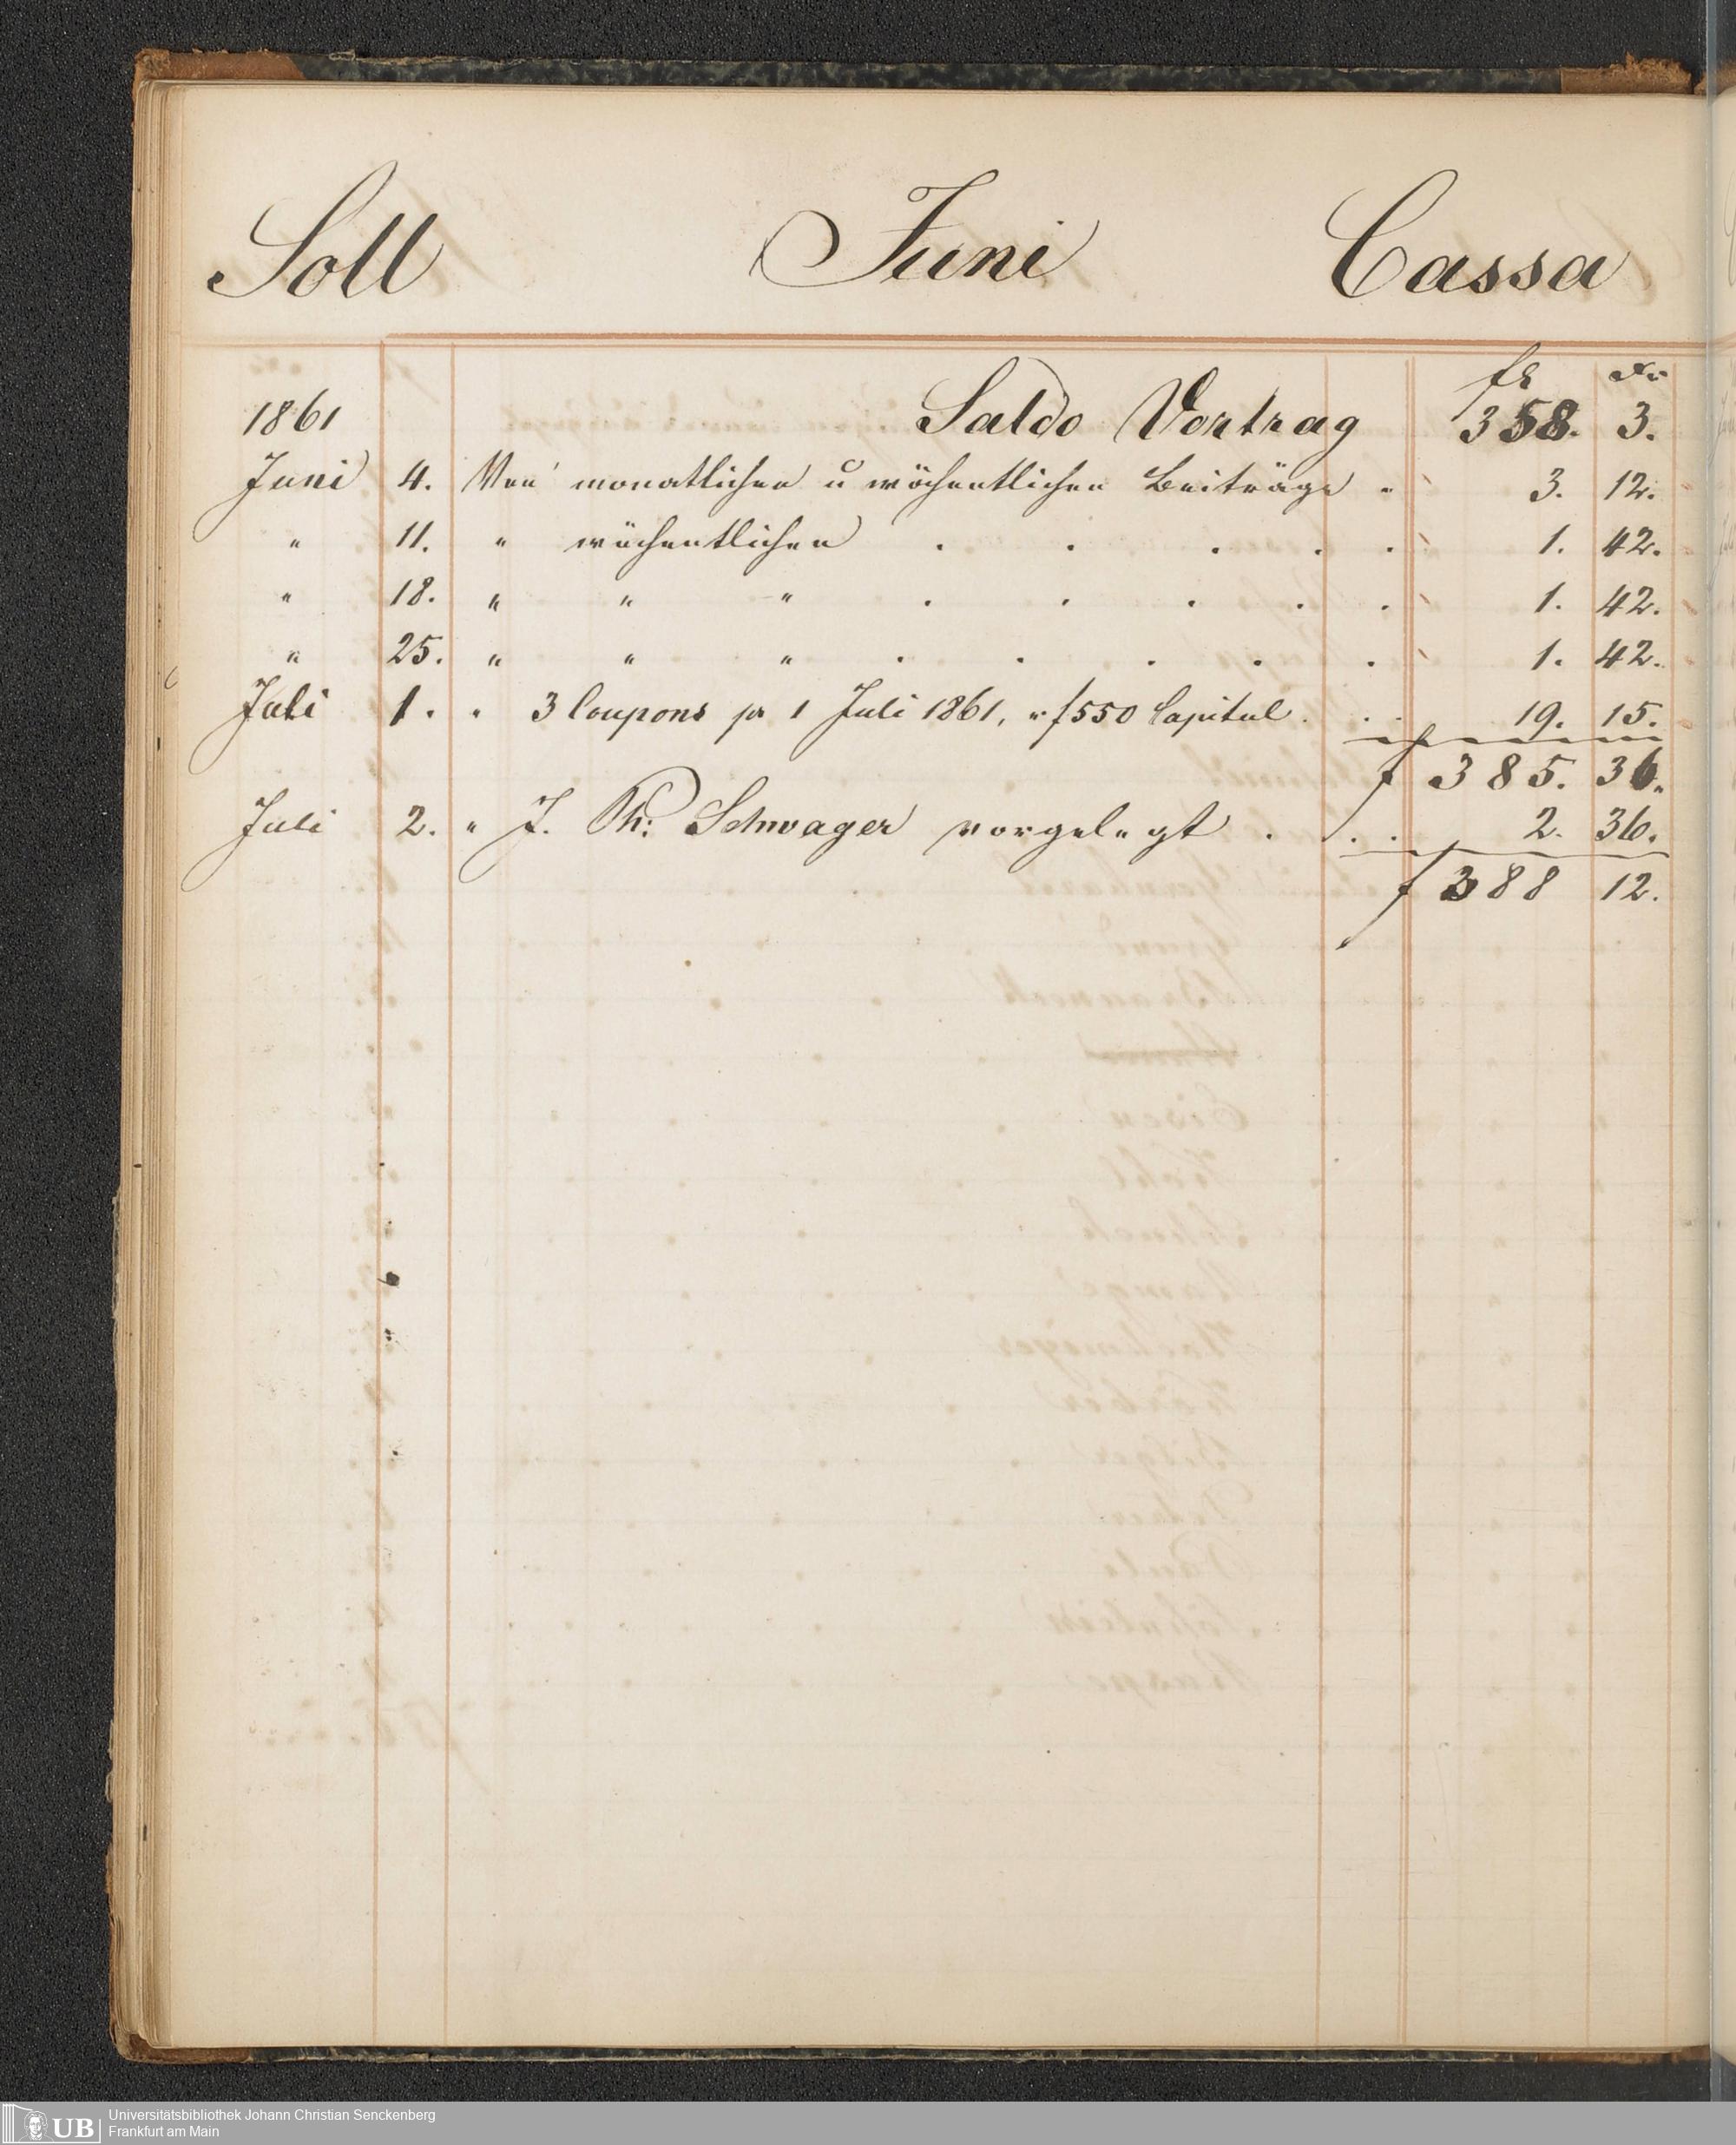 Soll Juni Cassa
fl xr
1861 Saldo Vortrag 358. 3.
Juni 4. Von monatlichen u wöchentlichen Beiträge . 3. 12.
" 11. " wöchentlichen . . . . . 1. 42.
" 18. " " " . . . . . 1. 42.
" 25. " " " . . . . . 1. 42.
Juli 1. " 3 Coupons pr 1 Juli 1861, " f 550 Capital . . . 19. 15.
f 385. 36.
Juli 2. " J. Ph: Schwager vorgelegt . . . 2. 36.
f 388 12.
UB Universitätsbibliothek Johann Christian Senckenberg
Frankfurt am Main